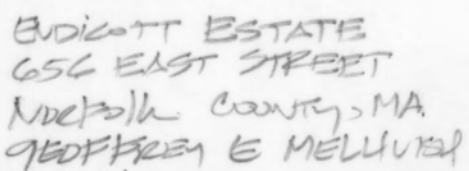 ENDICOTT ESTATE
656 EAST STREET
NORFOLK COUNTY, MA.
GEOFFREY E MELHUISH